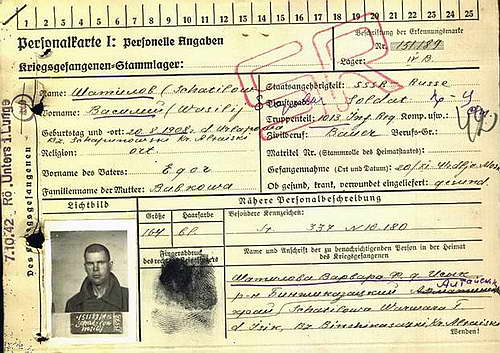 1 2 3 4 5 6 7 8 9 10 11 12 13 14 15 16 17 18 19 20 21 22 23 24 25
Personalkarte I: Personelle Angaben
Kriegsgefangenen-Stammlager:
Beschriftung der Erkennungsmarke
Nr. 151189
Lager: IV B.
Name: Шатилов / Schatilow
Vorname: Василий / Wasilij
Geburtstag und -ort: 20.8.1908 d.
Bz.
Religion: ort.
Vorname des Vaters: Egor
Familienname der Mutter: Bubkowa
Staatsangehörigkeit: SSSR - Russe
Dienstgrad: Soldat
Truppenteil: 1013 Inf. Reg. Komp. usw.:
Zivilberuf: Bauer Berufs-Gr.:
Matrikel Nr. (Stammrolle des Heimatstaates):
Gefangennahme (Ort und Datum): 20/XI.
Ob gesund, krank, verwundet eingeliefert: gesund.
7.10.42 Rö. Unters. i. Lunge
Des Kriegsgefangenen
Lichtbild
Größe
Haarfarbe
164
bl.
Fingerabdruck
des rechten Zeigefingers
Nähere Personalbeschreibung
Besondere Kennzeichen:
337 N 180
Name und Anschrift der zu benachrichtigenden Person in der Heimat
des Kriegsgefangenen
Шатилова Варвара Ф. д. Исык
Алтайск
р-н
край / Schatilowa Warwara F.
d. Isik, Bz.
Wenden!